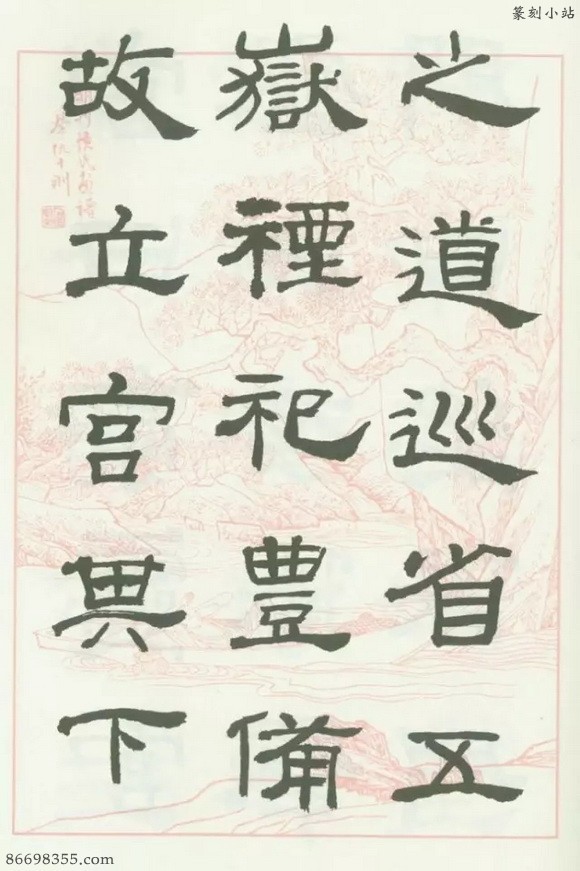 篆刻小站
之道巡省五
嶽禋祀豊備
故立宮其下
86698355.com